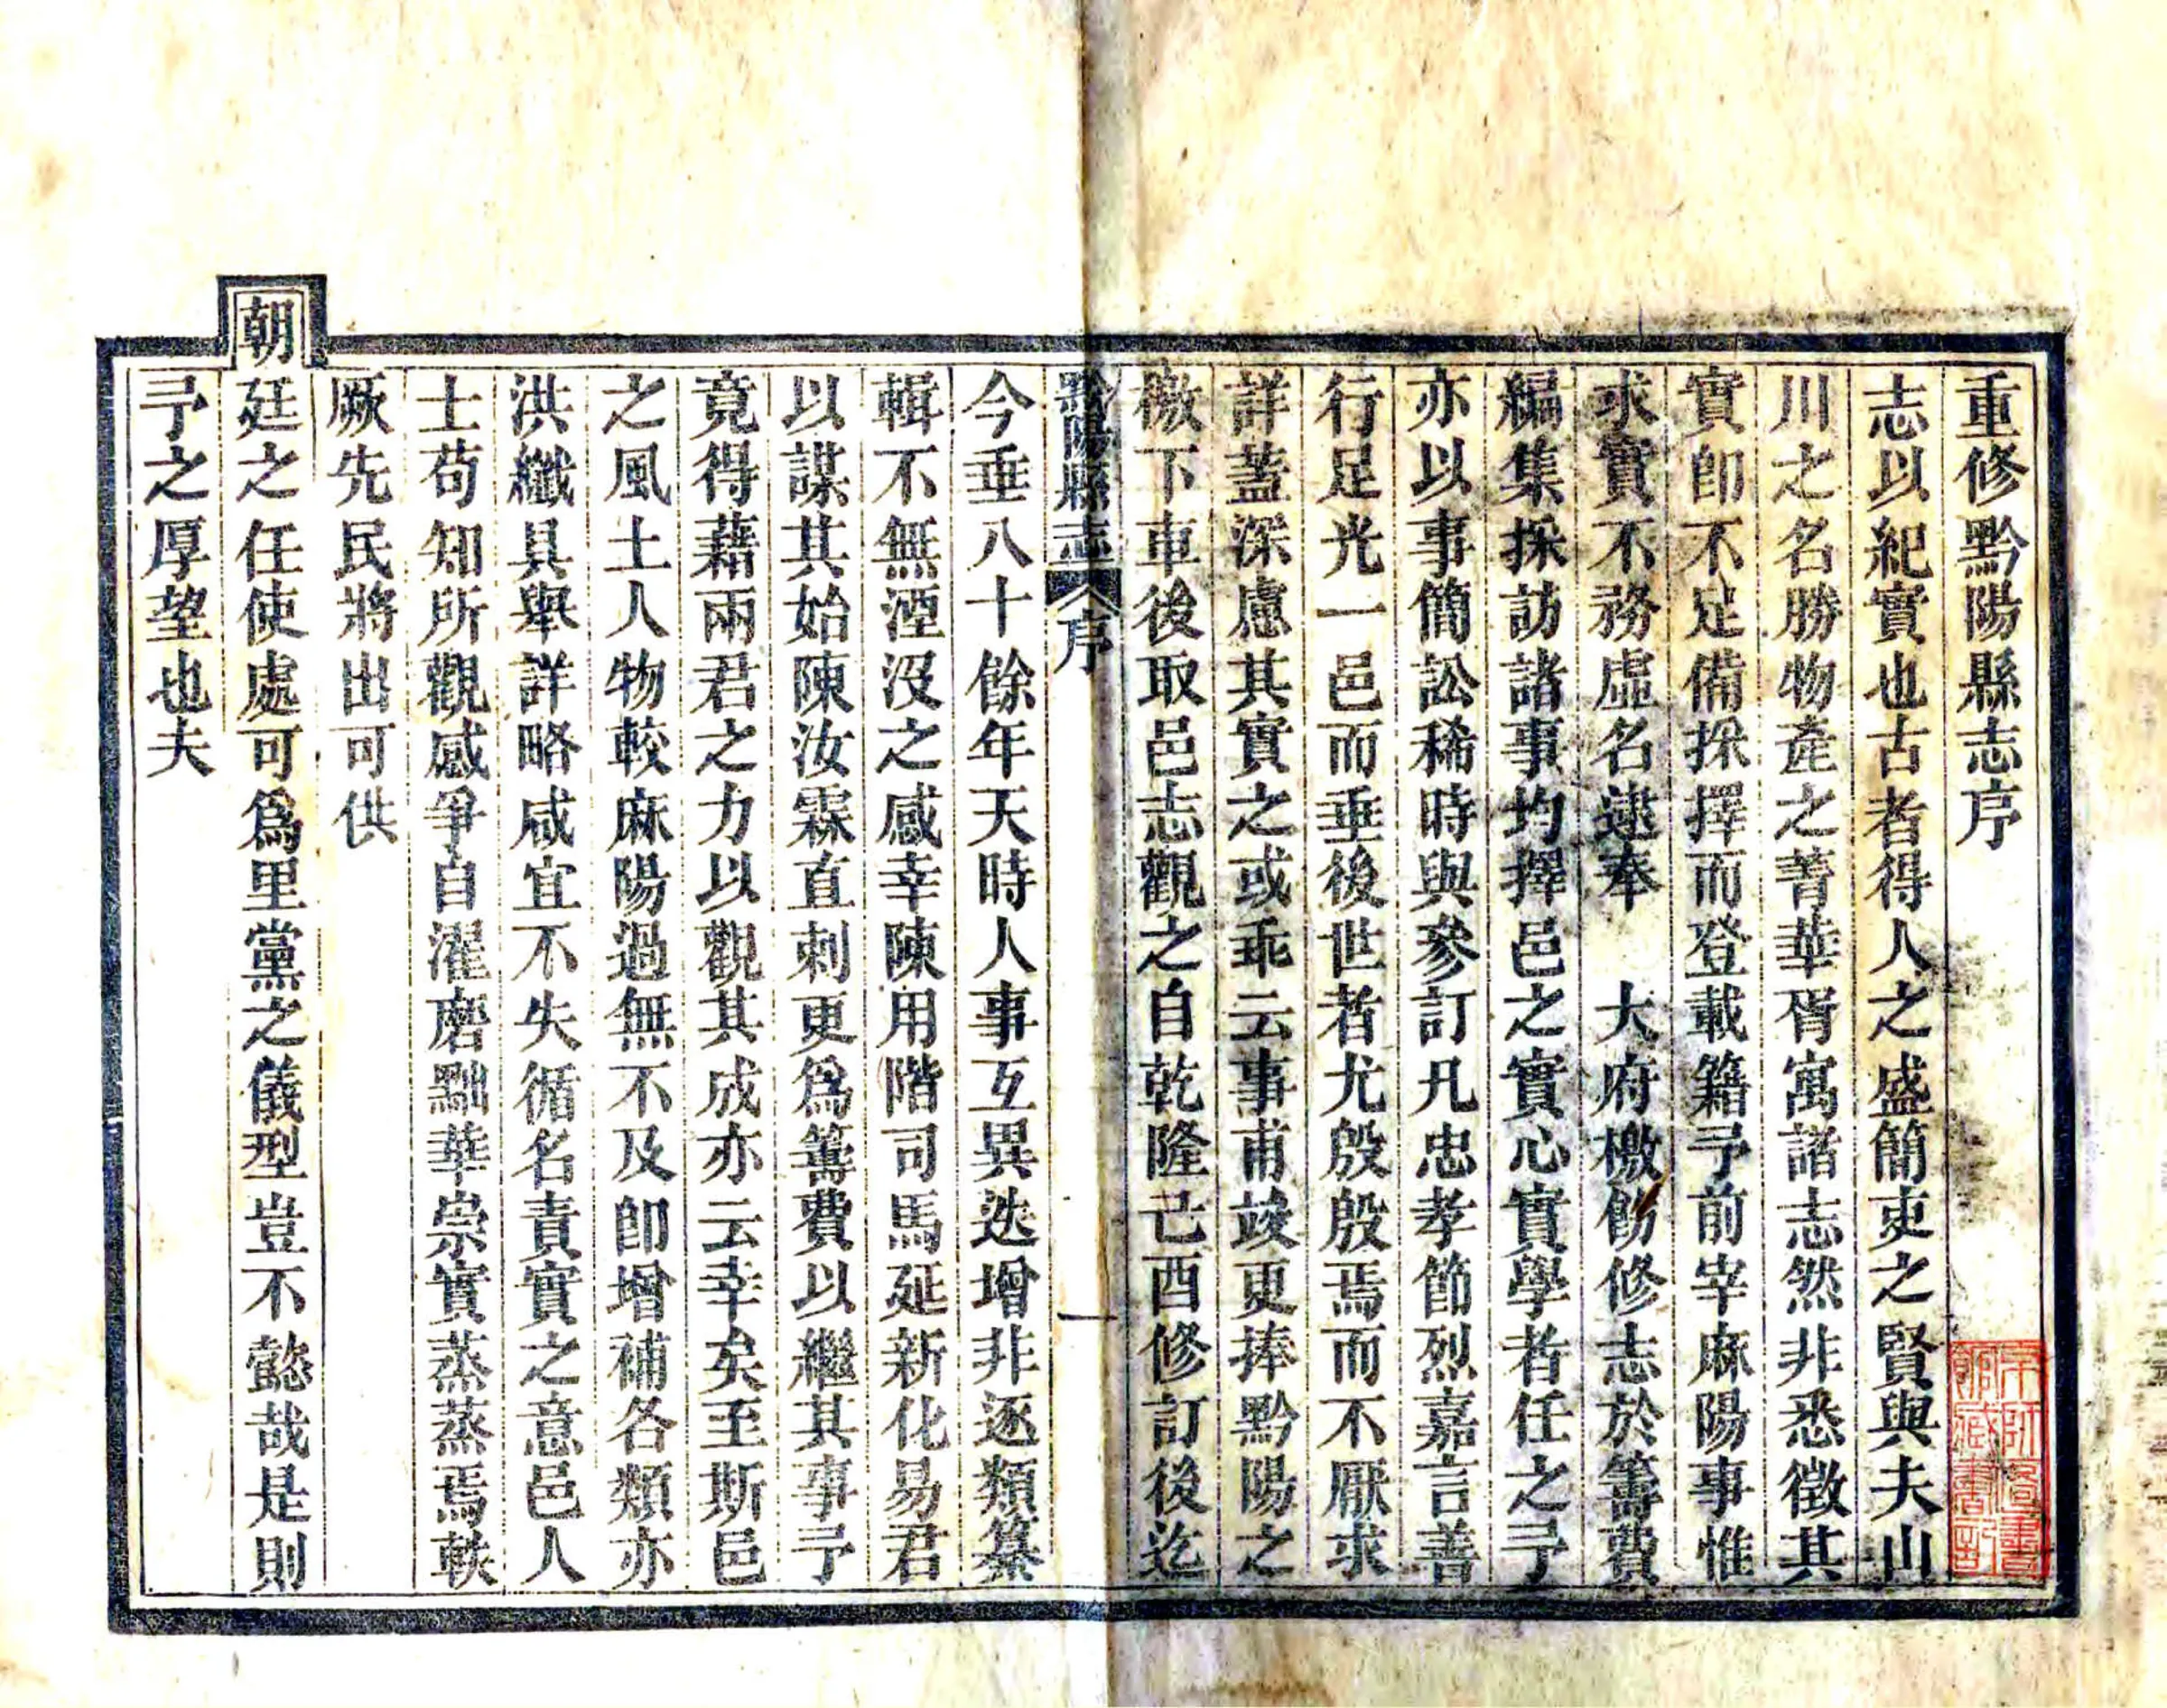 重修黔陽縣志序
志以紀實也古者得人之盛簡吏之賢與夫山
川之名勝物產之菁華胥寓諸志然非悉徵其
實卽不足備採擇而登載籍予前宰麻陽事惟
求實不務虛名逮奉　大府檄飭修志於籌費
編集採訪諸事均擇邑之實心實學者任之予
亦以事簡訟稀時與參訂凡忠孝節烈嘉言善
行足光一邑而垂後世者尤殷殷焉而不厭求
詳葢深慮其實之或乖云事甫竣更捧黔陽之
檄下車後取邑志觀之自乾隆己酉修訂後迄
黔陽縣志 序 一
今垂八十餘年天時人事互異迭增非逐類纂
輯不無湮沒之感幸陳用階司馬延新化易君
以謀其始陳汝霖直刺更爲籌費以繼其事予
竟得藉兩君之力以觀其成亦云幸矣至斯邑
之風土人物較麻陽過無不及卽增補各類亦
洪纖具舉詳略咸宜不失循名責實之意邑人
士苟知所觀感爭自濯磨黜華崇實蒸蒸焉軼
厥先民將出可供
朝廷之任使處可爲里黨之儀型豈不懿哉是則
予之厚望也夫